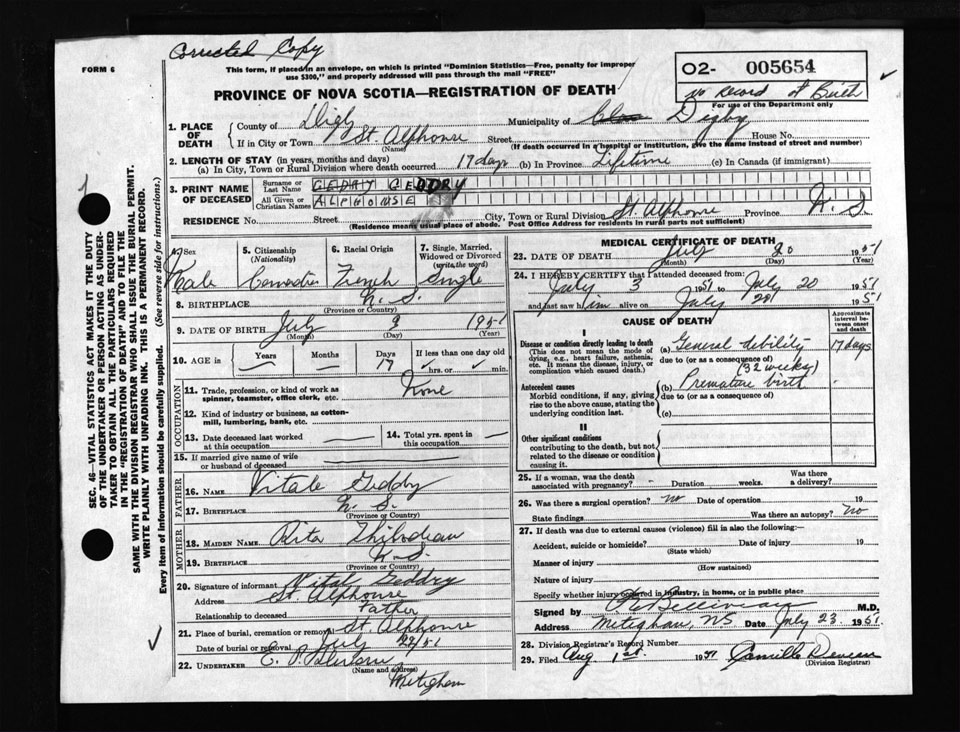 Corrected Copy
FORM 6
This form, if placed in an envelope, on which is printed "Dominion Statistics—Free, penalty for improper
use $300," and properly addressed will pass through the mail "FREE"
O2- 005654
No Record of Birth
For use of the Department only
PROVINCE OF NOVA SCOTIA—REGISTRATION OF DEATH
1. PLACE OF DEATH County of Digby Municipality of Clare Digby
If in City or Town St. Alphonse Street House No.
(Name) (If death occurred in a hospital or institution, give the name instead of street and number)
2. LENGTH OF STAY (in years, months and days)
(a) In City, Town or Rural Division where death occurred 17 days (b) In Province Lifetime (c) In Canada (if immigrant)
3. PRINT NAME OF DECEASED Surname or Last Name GEDRY GEDDRY
All Given or Christian Names ALPHONSE
RESIDENCE No. Street City, Town or Rural Division St Alphonse Province N.S.
(Residence means usual place of abode. Post Office Address for residents in rural parts not sufficient)
4. Sex 5. Citizenship (Nationality) 6. Racial Origin 7. Single, Married, Widowed or Divorced (write the word)
Male Canadian French Single
8. BIRTHPLACE N.S.
(Province or Country)
9. DATE OF BIRTH July 3 1951
(Month) (Day) (Year)
10. AGE in Years Months Days 17 If less than one day old hrs. or min.
OCCUPATION
11. Trade, profession, or kind of work as spinner, teamster, office clerk, etc. None
12. Kind of industry or business, as cotton-mill, lumbering, bank, etc.
13. Date deceased last worked at this occupation 14. Total yrs. spent in this occupation
15. If married give name of wife or husband of deceased
FATHER
16. NAME Vitale Geddry
17. BIRTHPLACE N.S.
(Province or Country)
MOTHER
18. MAIDEN NAME Rita Thibodeau
19. BIRTHPLACE N.S.
(Province or Country)
20. Signature of informant Vital Geddry
Address St. Alphonse
Relationship to deceased Father
21. Place of burial, cremation or removal St. Alphonse
Date of burial or removal July 22/51
22. UNDERTAKER E. P.
(Name and address)
Meteghan
MEDICAL CERTIFICATE OF DEATH
23. DATE OF DEATH July 20 1951
(Month) (Day) (Year)
24. I HEREBY CERTIFY that I attended deceased from:
July 3 1951 to July 20 1951
and last saw him alive on July 20 1951
CAUSE OF DEATH
Approximate interval between onset and death
I
Disease or condition directly leading to death (a) General debility 17 days
(This does not mean the mode of dying, e.g., heart failure, asthenia, etc. It means the disease, injury, or complication which caused death.)
due to (or as a consequence of)
(32 weeks)
Antecedent causes (b) Premature birth
Morbid conditions, if any, giving rise to the above cause, stating the underlying condition last.
due to (or as a consequence of)
(c)
II
Other significant conditions
contributing to the death, but not related to the disease or condition causing it.
25. If a woman, was the death associated with pregnancy? Duration weeks. Was there a delivery?
26. Was there a surgical operation? no Date of operation 19
State findings Was there an autopsy? no
27. If death was due to external causes (violence) fill in also the following:—
Accident, suicide or homicide? Date of injury 19
(State which)
Manner of injury
(How sustained)
Nature of injury
Specify whether injury occurred in industry, in home, or in public place
Signed by Belliveau M.D.
Address Meteghan, NS Date July 23 1951
28. Division Registrar's Record Number
29. Filed Aug 1st. 1951 Camille
(Division Registrar)
SEC. 46—VITAL STATISTICS ACT MAKES IT THE DUTY
OF THE UNDERTAKER OR PERSON ACTING AS UNDER-
TAKER TO OBTAIN ALL THE PARTICULARS REQUIRED
IN THE "REGISTRATION OF DEATH" AND TO FILE THE
SAME WITH THE DIVISION REGISTRAR WHO SHALL ISSUE THE BURIAL PERMIT.
WRITE PLAINLY WITH UNFADING INK. THIS IS A PERMANENT RECORD.
Every item of information should be carefully supplied. (See reverse side for instructions.)